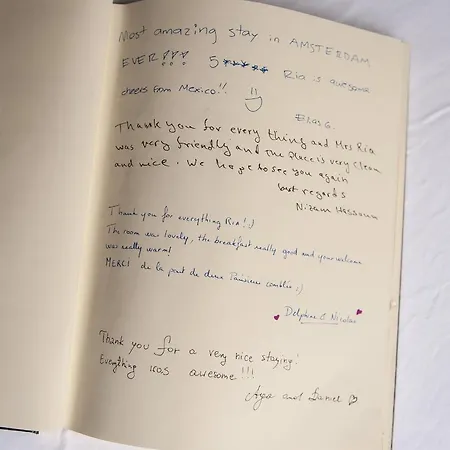 Most amazing stay in AMSTERDAM
EVER!!! 5 ★★★★★ Ria is awesome
cheers from Mexico!! :)
Elias G.
Thank you for every thing and Mrs Ria
was very friendly and the place is very clean
and nice. We hope to see you again
best regards
Nizam Hassoun
Thank you for everything Ria! :)
The room was lovely, the breakfast really good and your welcome
was really warm!
MERCI de la part de deux Parisiens comblés :)
Delphine & Nicolas
Thank you for a very nice staying!
Everything was awesome!!!
Aga and Daniel ♡